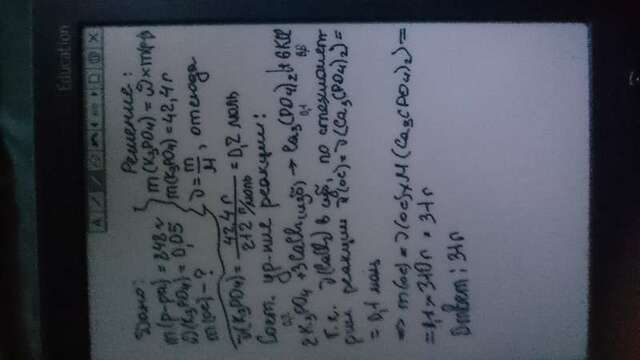 Education
Дано:
m(р-ра) = 848 г
ω(K₃PO₄) = 0,05
m(ос) - ?
Решение:
m(K₃PO₄) = ω × m(р-р)
m(K₃PO₄) = 42,4 г
ν = m/M, отсюда
ν(K₃PO₄) = 42,4 г / 212 г/моль = 0,2 моль
Сост. ур-ние реакции:
0,2 0,1 0,6
2K₃PO₄ + 3CaCl₂(изб) → Ca₃(PO₄)₂↓ + 6KCl
Т.к. ν(CaCl₂) в изб, по стехиомет
рии реакции ν(ос) = ν(Ca₃(PO₄)₂) =
= 0,1 моль
=> m(ос) = ν(ос) × M(Ca₃(PO₄)₂) =
= 0,1 × 310 г = 31 г
Ответ: 31 г